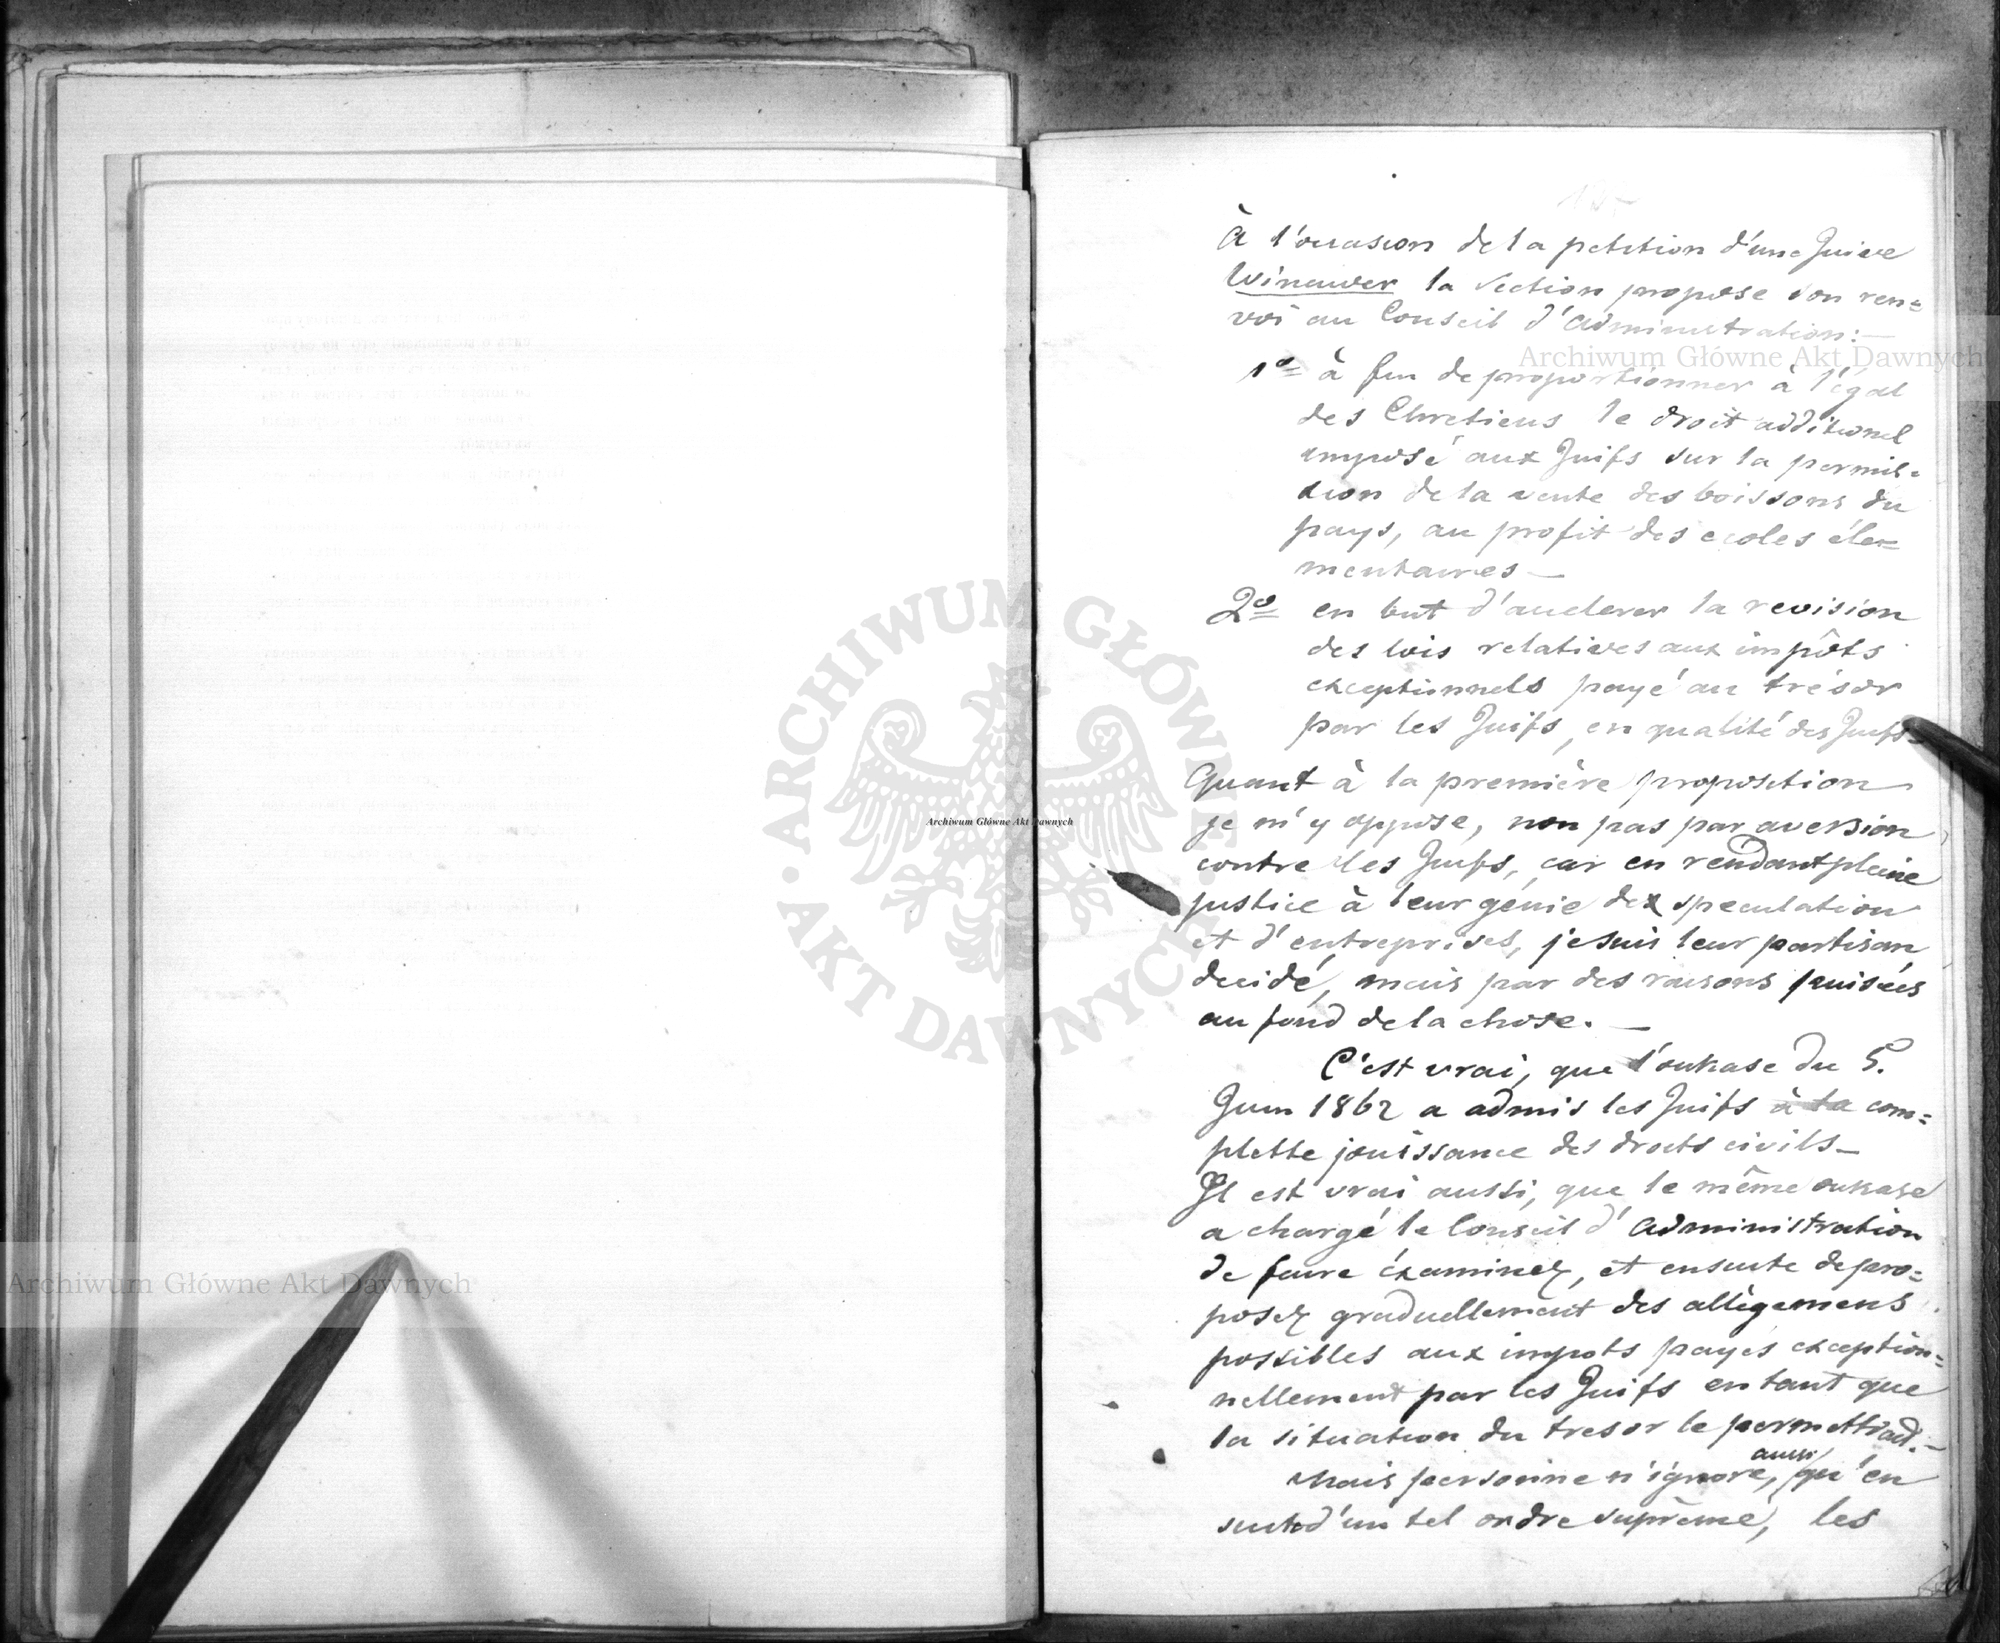 À l'occasion de la petition d'une Juive
Winawer la Section propose son ren=
voi au Conseil d'Administration:—
1º à fin de proportionner à l'égal
des Chretiens le droit additionel
imposé aux Juifs sur la permis=
sion de la vente des boissons du
pays, au profit des ecoles éle=
mentaires —
2º en but d'accelerer la revision
des lois relatives aux impôts
exceptionnels payé au trésor
par les Juifs, en qualité des Juifs—
Quant à la première proposition
je m'y oppose, non pas par aversion
contre les Juifs, car en rendant pleine
justice à leur génie de speculation
et d'entreprises, je suis leur partisan
decidé, mais par des raisons puisées
au fond de la chose. —
C'est vrai, que l'oukase du 5.
Juin 1862 a admis les Juifs à la com=
plette jouissance des droits civils—
Il est vrai aussi, que le même oukase
a chargé le Conseil d'Administration
de faire éxaminer, et ensuite de pro=
poser graduellement des allègemens
possibles aux impots payés exception=
nellement par les Juifs en tant que
la situation du tresor le permettrait.—
Mais personne n'ignore, aussi qu'en
suite d'un tel ordre suprème, les
Archiwum Główne Akt Dawnych
Archiwum Główne Akt Dawnych
Archiwum Główne Akt Dawnych
ARCHIWUM GŁÓWNE
AKT DAWNYCH